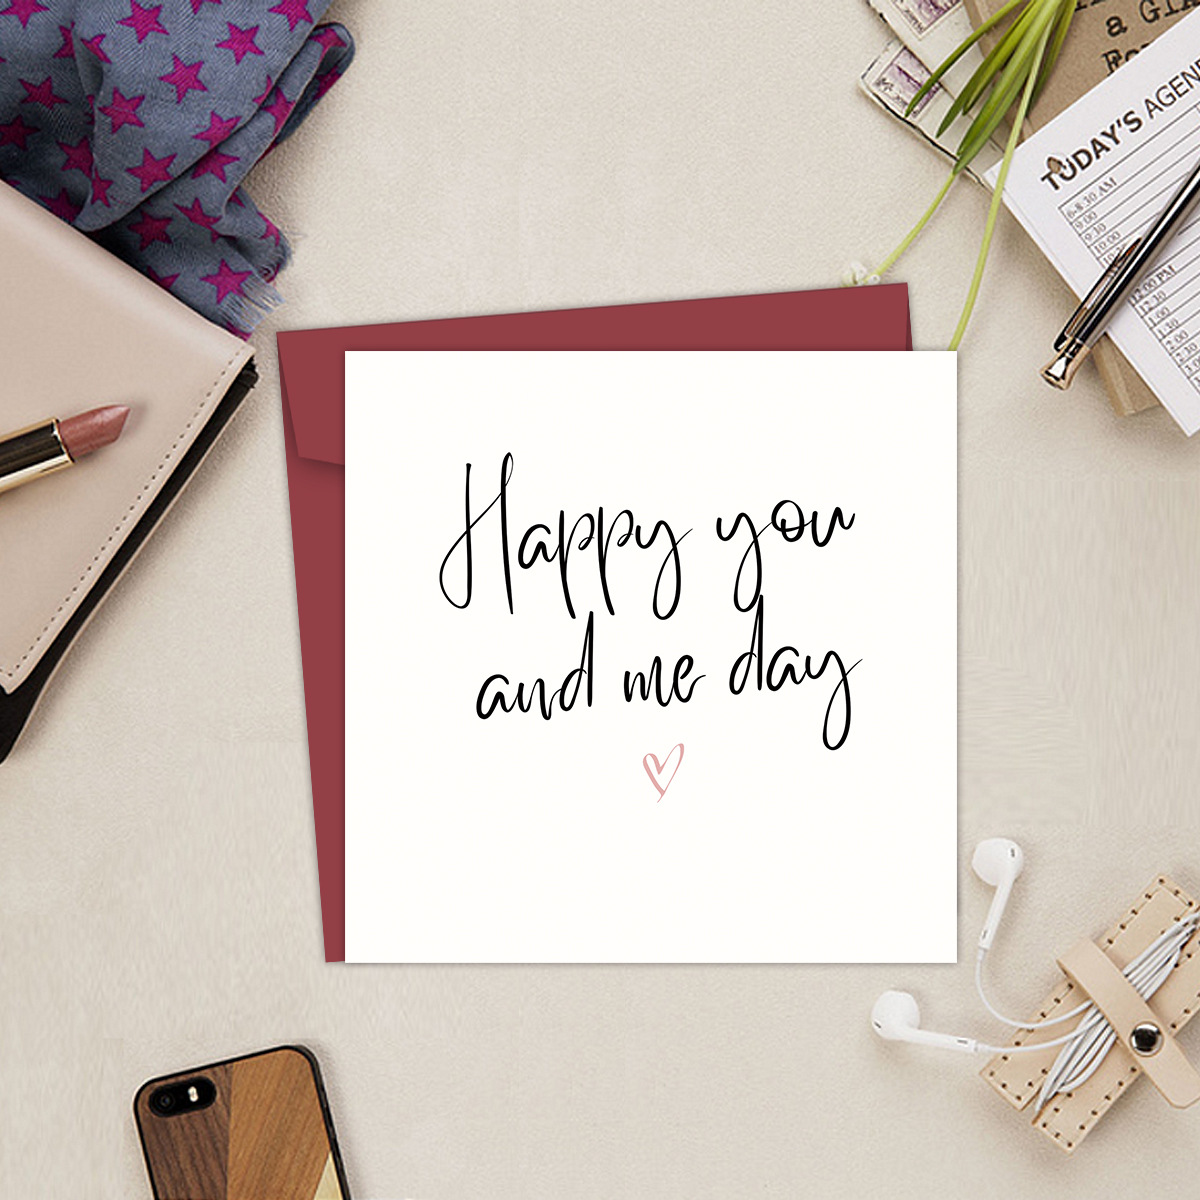 a GIA
TODAY'S AGEN
6-8:30 AM
9:00
9:30
10:00
12:00 PM
12:30
1:00
1:30
2:00
2:30
Happy you
and me day